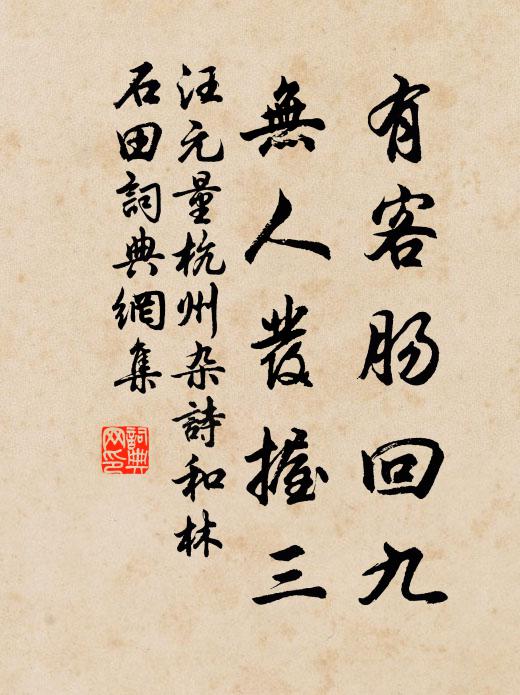 有客肠回九
無人發握三
汪元量杭州杂詩和林
石田詞典網集
詞典
网印